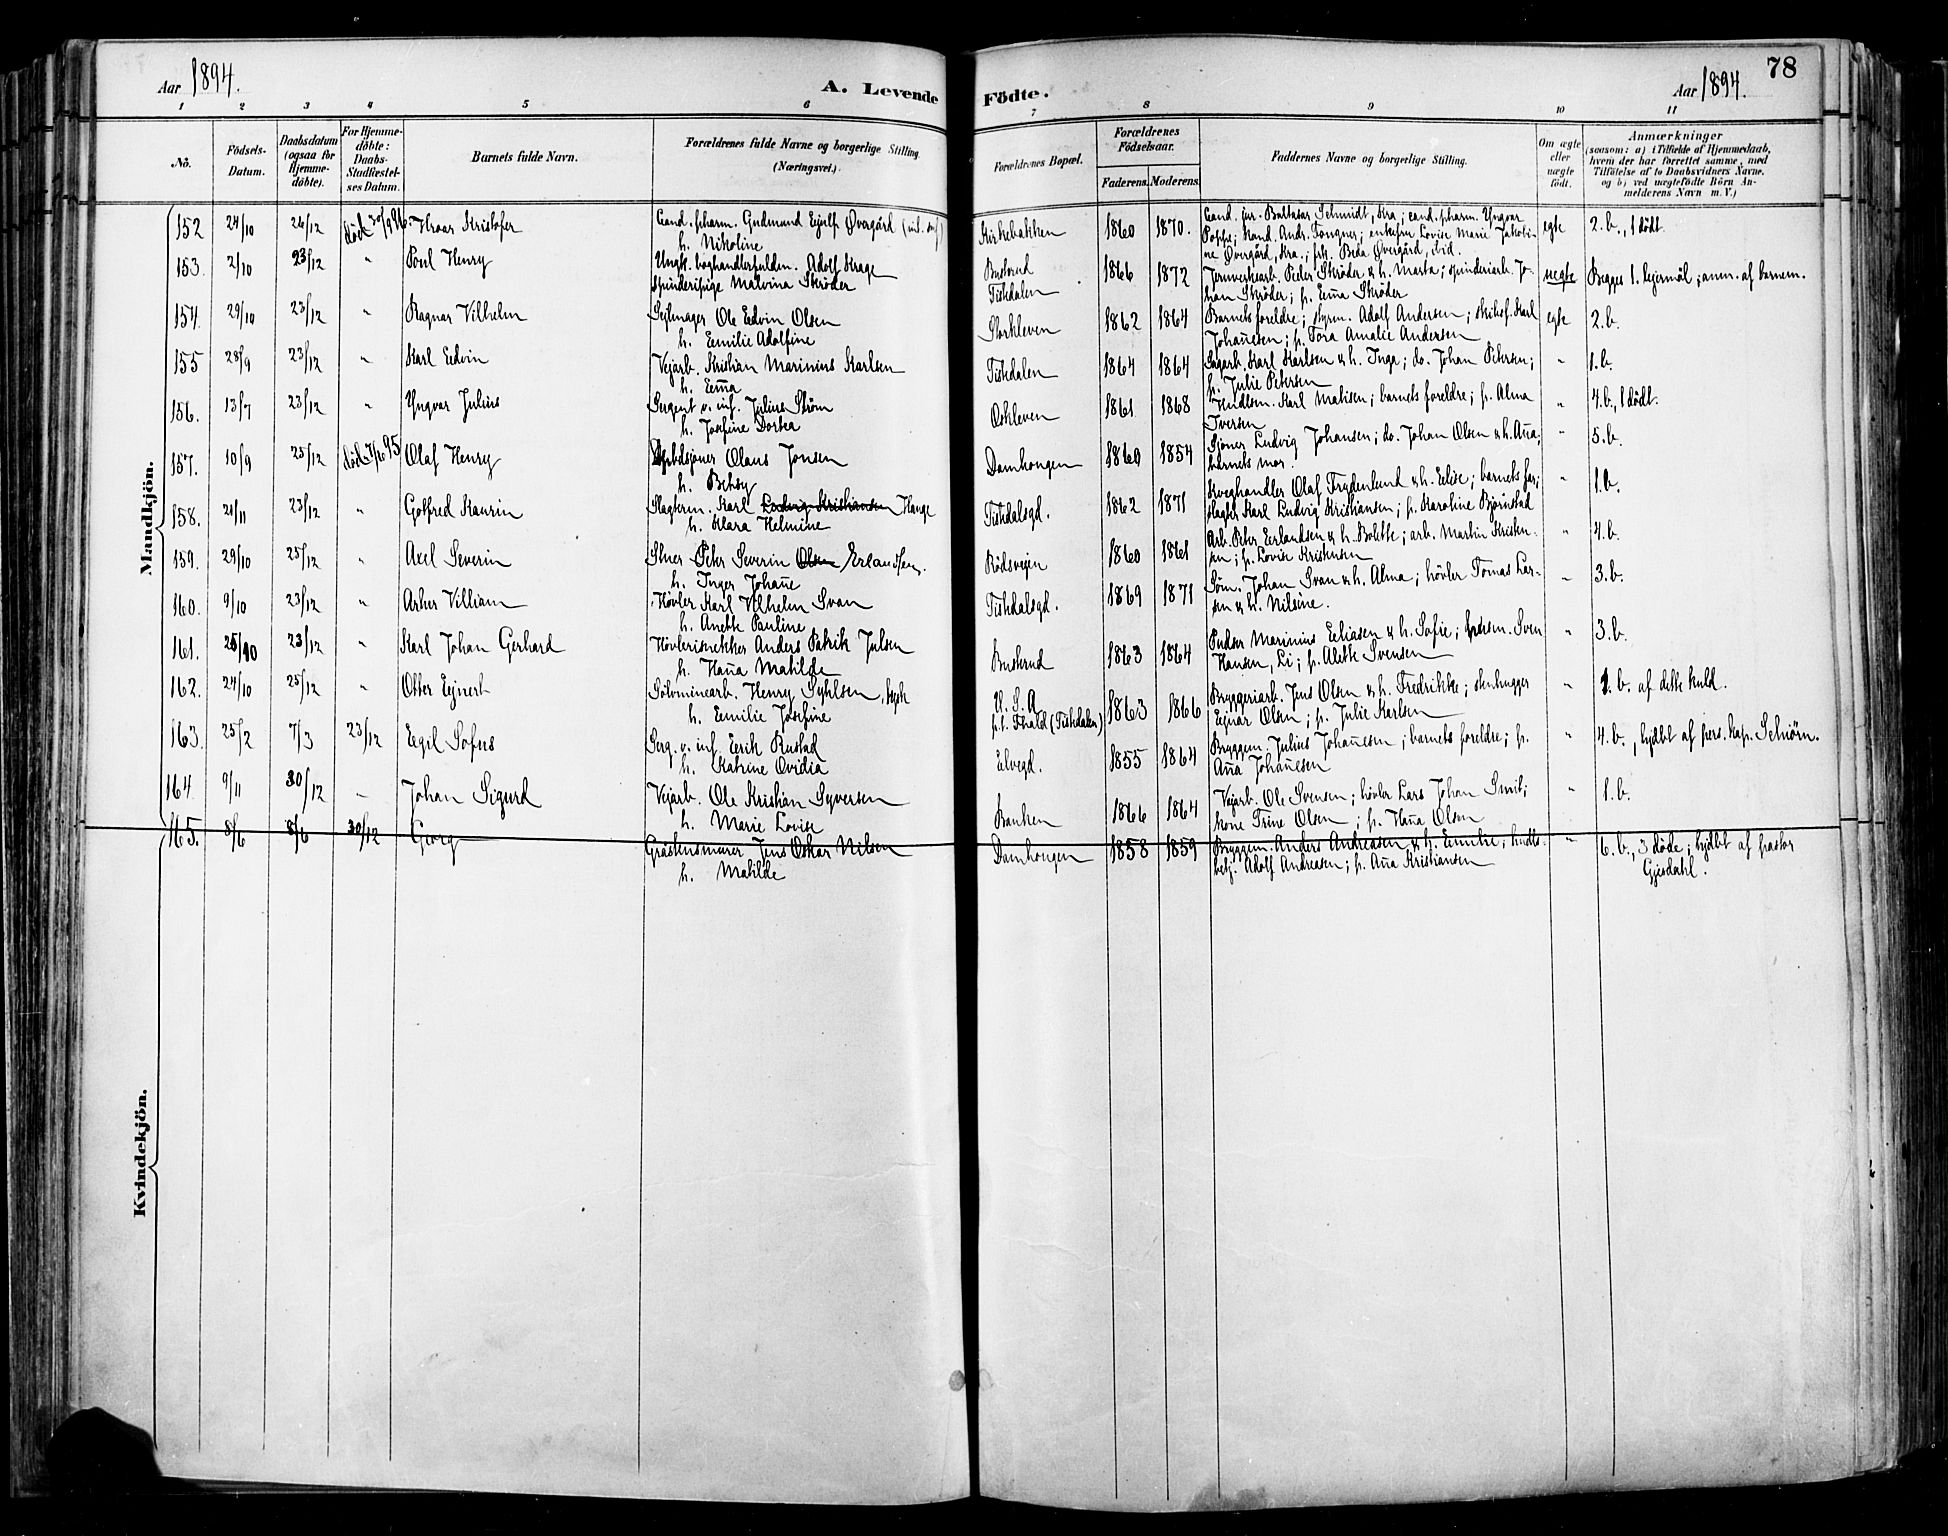 Aar 1894.
A. Levende Födte.
Aar 1894.
78
1 2 3 4 5 6 7 8 9 10 11
No.
Födsels-
Datum.
Daabsdatum
(ogsaa for
Hjemme-
döbte).
For Hjemme-
döbte:
Daabs-
Stadfæstel-
ses Datum.
Barnets fulde Navn.
Forældrenes fulde Navne og borgerlige Stilling
(Næringsvei.)
Forældrenes Bopæl.
Forældrenes
Födselsaar.
Faderens. Moderens.
Faddernes Navne og borgerlige Stilling.
Om ægte
eller
uægte
födt.
Anmærkninger
(saasom: a) i Tilfælde af Hjemmedaab,
hvem der har forrettet samme, med
Tilföielse af to Daabsvidners Navne.
og b) ved uægtefödte Börn An-
melderens Navn m. V.)
Mandkjön.
Kvindekjön.
152 24/10 26/12 död 30/9 96. Hroar Kristofer
Cand. pharm. Gudmund Ejulf Øvergård
h. Nikoline
Kirkebakken 1860 1870.
Cand. jur. Baltasar Schmidt, Kra; cand. pharm. Yngvar
Poppe; Kand. Andr. Tongner; enkefru Lovise Marie Jakobi-
ne Øvergård, Kra.; frk. Beda Øvergård, ibid.
egte 2. b., 1 dödt.
153. 2/10 23/12 " Poul Henry
Ungk. boghandlerfuldm. Adolf Krage
Spinderipige Malvina Skröder
Buskrud
Tistedalen 1866 1872
Jernverksarb. Peder Skröder & h. Marta; spinderiarb. Jo-
han Skröder; p. Emma Skröder
uegte Begges 1. lejermål; anm. af barnem.
154. 29/10 23/12 " Ragnar Vilhelm
Sejlmager Ole Edvin Olsen
h. Emilie Adolfine
Storkleven 1862 1864
Barnets foreldre; styrm. Adolf Andersen; Karl
Johannesen; p. Tora Amalie Andersen
egte 2. b.
155 28/9 23/12 " Karl Edvin
Vejarb. Kristian Marinius Karlsen
h. Emma
Tistedalen 1864 1864
Karl Karlsen & h. Inga; do. Johan Petersen;
p. Julie Petersen
" 1. b.
156. 13/7 23/12 " Yngvar Julius
Sergent v. inf. Julius Strøm
h. Josefine Dortea
Oskleven 1861 1868
Karl Matisen; barnets foreldre; p. Alma
Iversen
" 4. b., 1 dödt.
157. 10/9 25/12 Olaf Henry
Olaus Jonsen
h. Betsy
Damhougen 1860 1854
Sjømr. Ludvig Johansen; do. Johan Olsen & h. Anna;
barnets mor.
" 5. b.
158. 21/11 23/12 " Gotfred Kaurin
Slagterm. Karl Ludvig Kristiansen Hange
h. Klara Helmine
Tistedalsgd. 1862 1871
Kveghandler Olaf Frydenlund & h. Elise; barnets far;
slagter Karl Ludvig Kristiansen; p. Karoline Björnstad
" 1. b.
159. 29/10 25/12 " Axel Severin
Peter Severin Olsen Erlandsen.
h. Inger Johanne
Rödsvejen 1860 1861
Arb. Peter Erlandsen & h. Bolette; arb. Martin Kristen-
sen; p. Lovise Kristensen
" 4. b.
160. 9/10 23/12 " Artur Villiam
Hövler Karl Vilhelm Svan
h. Anette Pauline
Tistedalsgd. 1869 1871
Johan Svan & h. Alma; hövler Tomas Lar-
sen & h. Nilsine.
" 3. b.
161. 25/10 23/12 " Karl Johan Gerhard
Anders Patrik Julsen
h. Hanna Matilde
Buskrud 1863 1864
Pudser Marinius Eliasen & h. Sofie; Sven
Hansen, Li; p. Alette Svensen
" 3. b.
162. 24/10 25/12 " Otter Ejnert
Sölvminearb. Henry Syhlsen,
h. Emilie Josefine
U. S. A
p. t. Fhald (Tistedalen) 1863 1866
Bryggeriarb. Jens Olsen & h. Fredrikke; stenhugger
Ejnar Olsen; p. Julie Karlsen
" 1. b. af dette kuld.
163. 25/2 7/3 23/12 Egil Sofus
Serg. v. inf. Eerik Rustad
h. Katrine Ovidia
Elvegd. 1855 1864
Bryggem. Julius Johannesen; barnets foreldre; p.
Anna Johannesen
" 4. b., hjdbt af pers. kap. Schiörn.
164 9/11 30/12 " Johan Sigurd
Vejarb. Ole Kristian Syversen
h. Marie Lovise
Banken 1866 1864
Vejarb. Ole Svensen; hövler Lars Johan Smit;
kone Trine Olsen; p. Hanna Olsen
" 1. b.
165. 8/6 8/6 30/12 Georg
Gråstensmurer Jens Oskar Nilsen
h. Matilde
Damhougen 1858 1859
Bryggem. Anders Andreasen & h. Emilie; hndls-
betj. Adolf Andreasen; p. Anna Kristiansen
" 6. b., 3 döde; hjdbt af pastor
Gjesdahl.